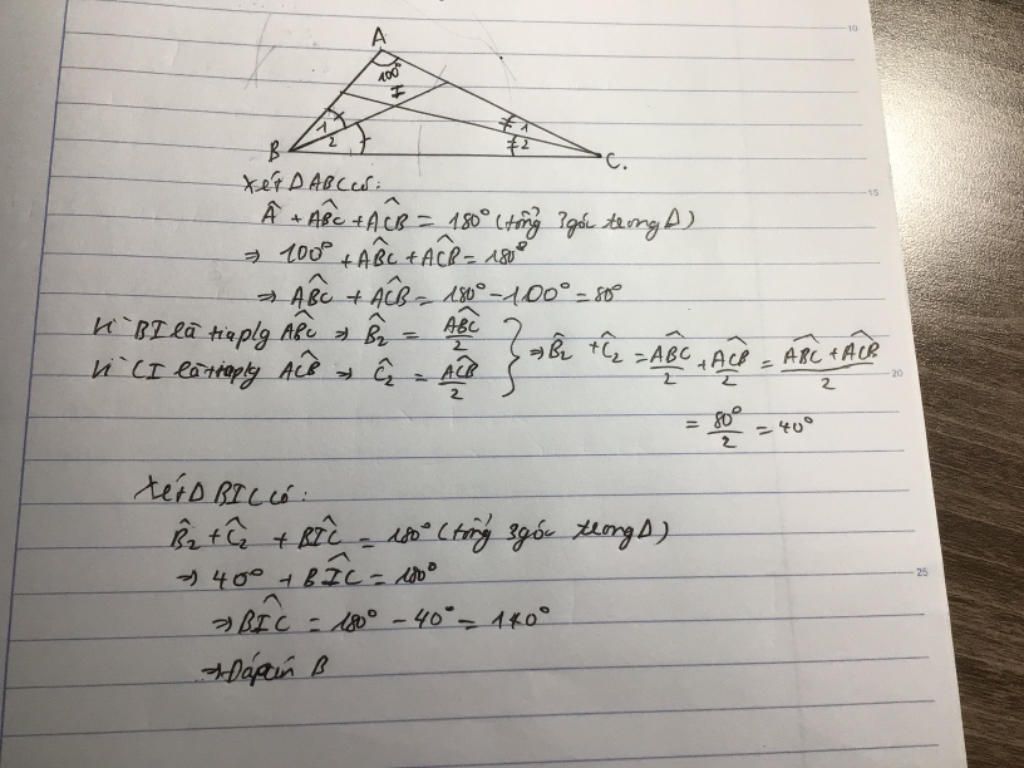 A
100°
I
1
2
1
2
B
C.
10
15
20
25
Xét Δ ABC có:
Â + AB̂C + AĈB = 180° (tổng 3 góc trong Δ)
⇒ 100° + AB̂C + AĈB = 180°
⇒ AB̂C + AĈB = 180° - 100° = 80°
Vì BI là tia p/g AB̂C ⇒ B̂₂ = AB̂C/2
Vì CI là tia p/g AĈB ⇒ Ĉ₂ = AĈB/2
} ⇒ B̂₂ + Ĉ₂ = AB̂C/2 + AĈB/2 = (AB̂C + AĈB)/2
= 80°/2 = 40°
Xét Δ BIC có:
B̂₂ + Ĉ₂ + BÎC = 180° (tổng 3 góc trong Δ)
⇒ 40° + BÎC = 180°
⇒ BÎC = 180° - 40° = 140°
⇒ Đáp án B